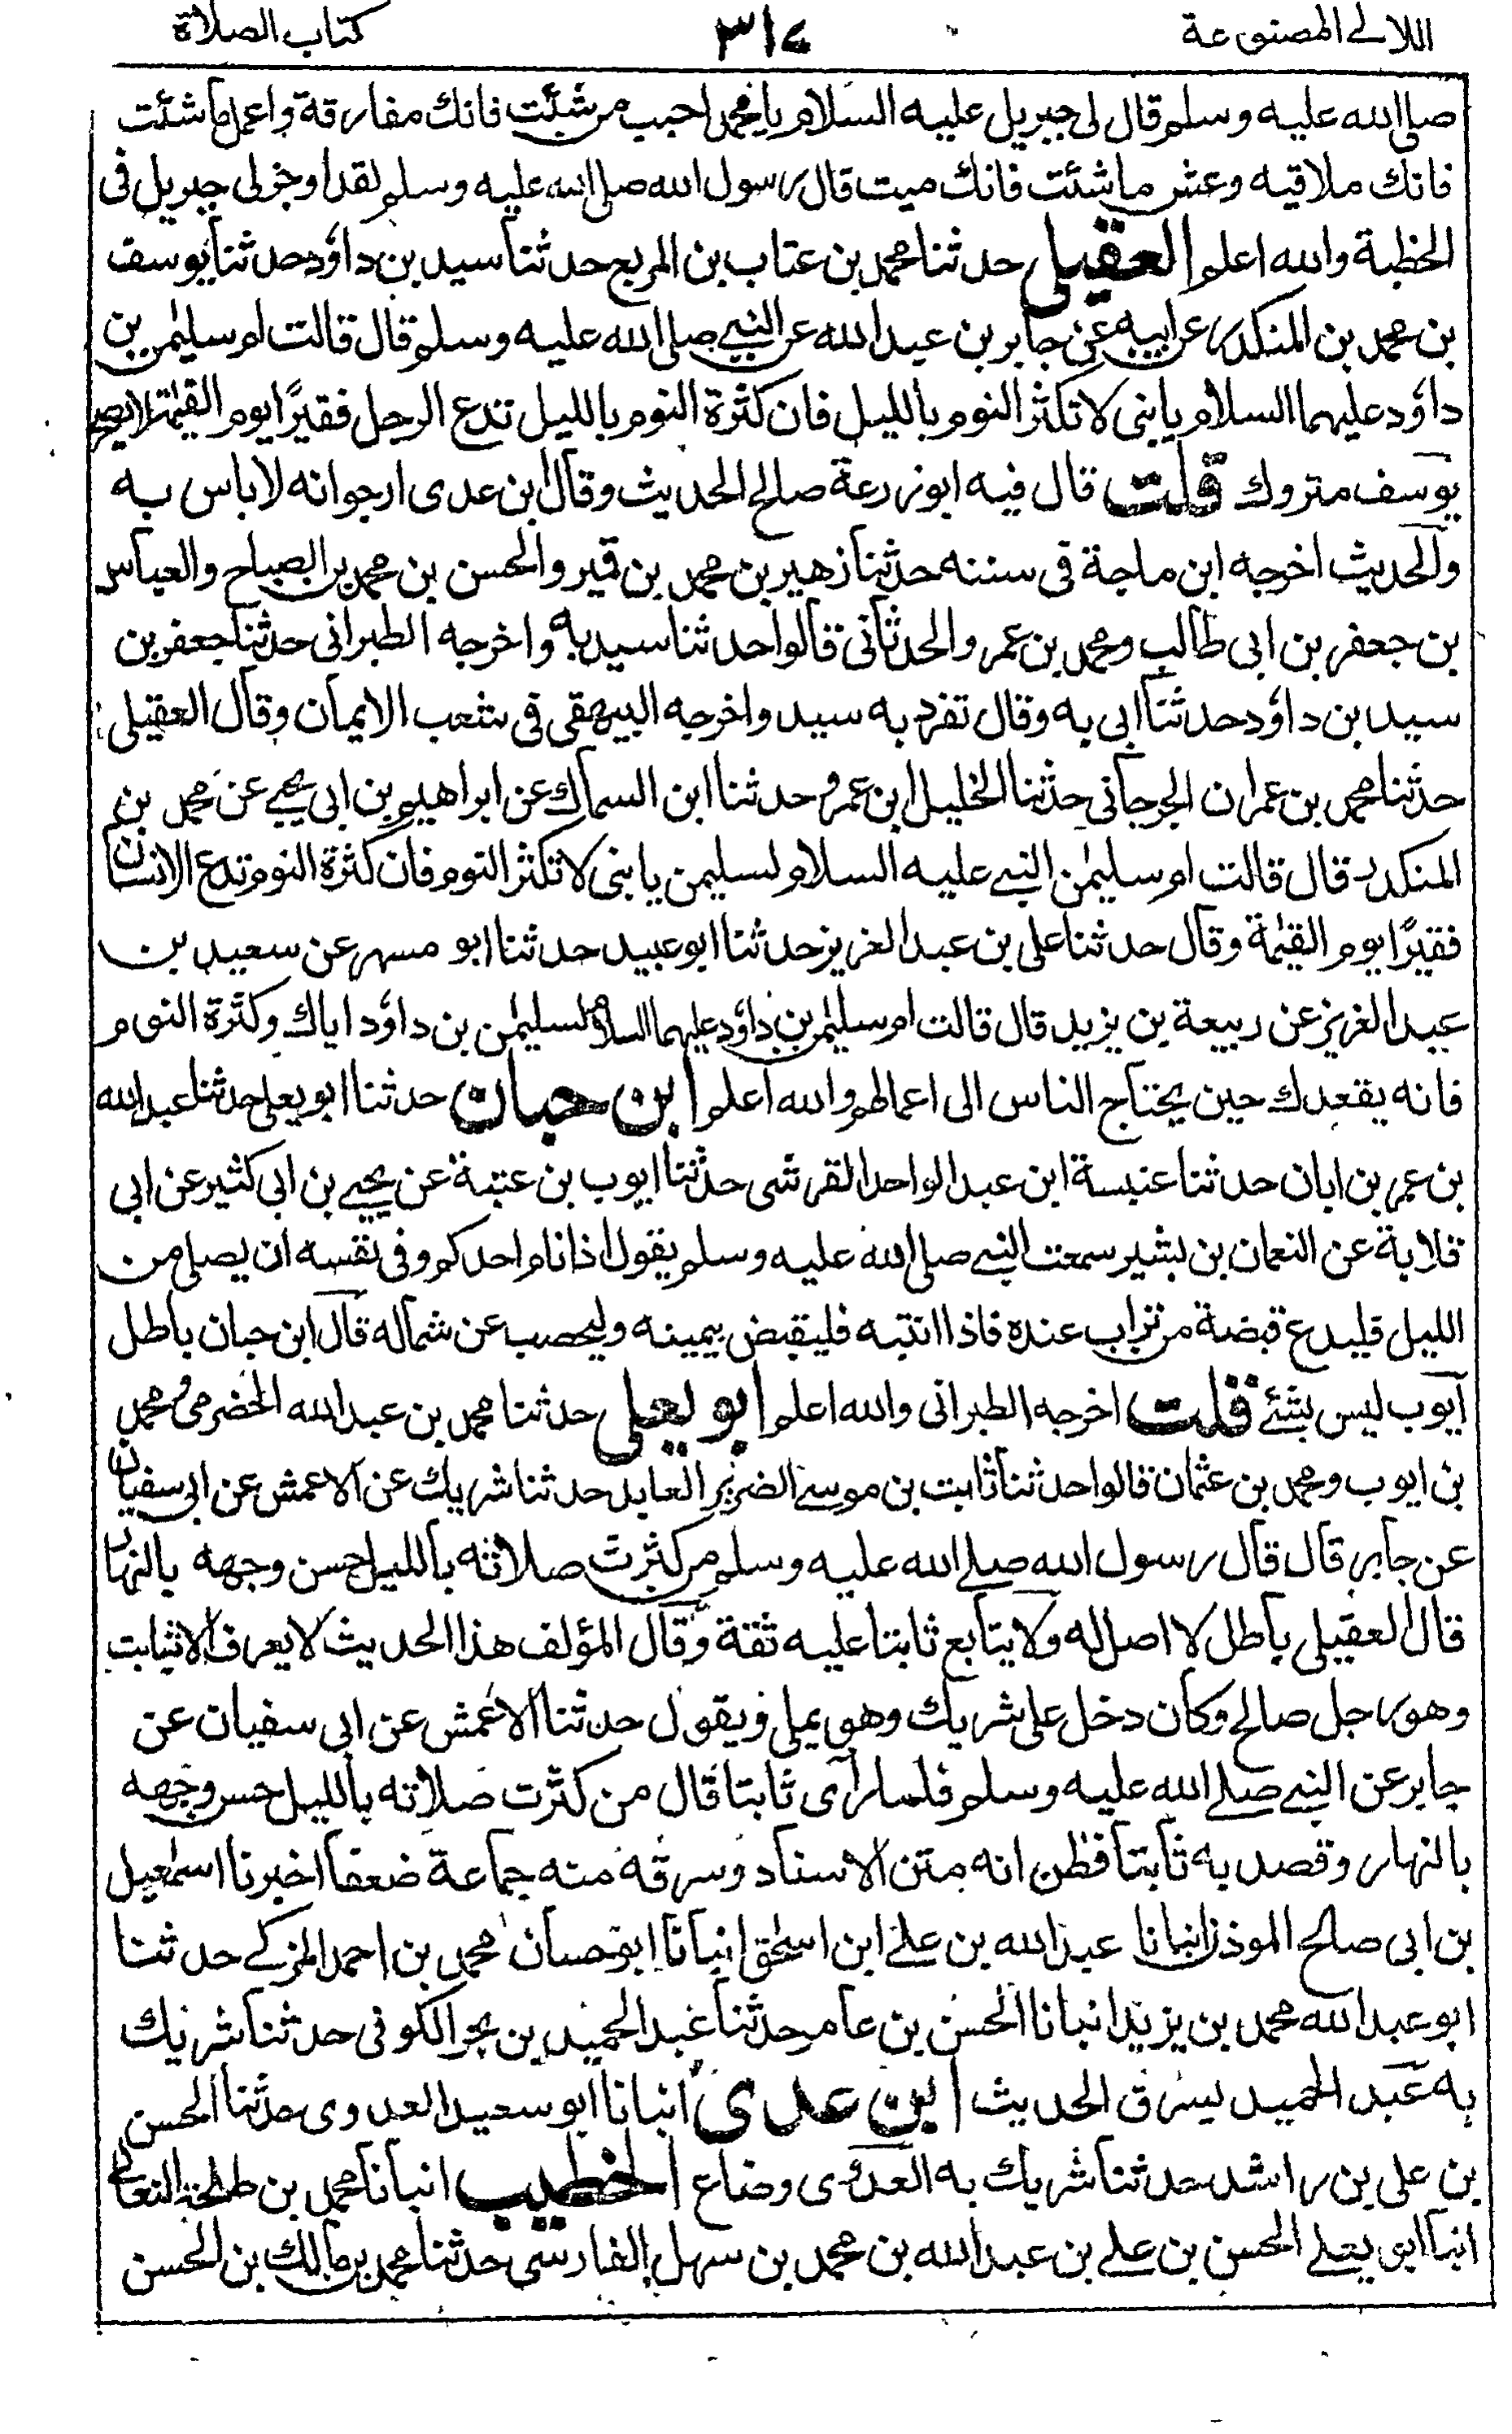 اللآلى المصنوعة ٣١٤ كتاب الصلاة
صلى الله عليه وسلم قال لى جبريل عليه السلام يا محمد احبب من شئت فانك مفارقة واعمل ما شئت
فانك ملاقيه وعش ما شئت فانك ميت قال رسول الله صلى الله عليه وسلم لقد اوجز لى جبريل فى
الخطبة والله اعلم العقيلى حدثنا محمد بن عتاب بن المربع حدثنا سنيد بن داؤد حدثنا يوسف
بن محمد بن المنكدر عن ابيه عن جابر بن عبد الله عن النبي صلى الله عليه وسلم قال قالت ام سليمن بن
داؤد عليهما السلام يا بنى لا تكثر النوم بالليل فان كثرة النوم بالليل تدع الرجل فقيرًا يوم القيمة لا يصح
يوسف متروك قلت قال فيه ابو زرعة صالح الحديث وقال ابن عدى ارجوانه لا باس به
والحديث اخرجه ابن ماجة فى سننه حدثنا زهير بن محمد بن قمير والحسن بن محمد بن الصباح والعباس
بن جعفر بن ابى طالب ومحمد بن عمر والحدثانى قالوا حدثنا سنيد به واخرجه الطبرانى حدثنا جعفر بن
سنيد بن داؤد حدثنا ابى به وقال تفرد به سنيد واخرجه البيهقى فى شعب الايمان وقال العقيلى
حدثنا محمد بن عمران الجرجانى حدثنا الخليل ابن عمرو حدثنا ابن السماك عن ابراهيم بن ابى يحيى عن محمد بن
المنكدر قال قالت ام سليمن النبي عليه السلام لسليمن يا بنى لا تكثر النوم فان كثرة النوم تدع الانسان
فقيرًا يوم القيمة وقال حدثنا على بن عبد العزيز حدثنا ابو عبيد حدثنا ابو مسهر عن سعيد بن
عبد العزيز عن ربيعة بن يزيد قال قالت ام سليمن بن داؤد عليهما السلام لسليمن بن داؤد اياك وكثرة النوم
فانه يفقدك حين يحتاج الناس الى اعمالهم والله اعلم ابن حبان حدثنا ابو يعلى حدثنا عبد الله
بن عمر بن ابان حدثنا عنبسة ابن عبد الواحد القرشى حدثنا ايوب بن عتبة عن يحيى بن ابى كثير عن ابى
قلابة عن النعمان بن بشير سمعت النبي صلى الله عليه وسلم يقول اذا نام احدكم وفى نفسه ان يصلى من
الليل فليدع قبضة من تراب عنده فاذا انتبه فليقبض بيمينه وليحصب عن شماله قال ابن حبان باطل
ايوب ليس بشئ قلت اخرجه الطبرانى والله اعلم ابو يعلى حدثنا محمد بن عبد الله الحضرمى ومحمد
بن ايوب ومحمد بن عثمان قالوا حدثنا ثابت بن موسى الضرير العابد حدثنا شريك عن الاعمش عن ابى سفيان
عن جابر قال قال رسول الله صلى الله عليه وسلم من كثرت صلاته بالليل حسن وجهه بالنهار
قال العقيلى باطل لا اصل له ولا يتابع ثابتا عليه ثقة وقال المؤلف هذا الحديث لا يعرف الا بثابت
وهو رجل صالح وكان دخل على شريك وهو يملى ويقول حدثنا الاعمش عن ابى سفيان عن
جابر عن النبي صلى الله عليه وسلم فلما رأى ثابتا قال من كثرت صلاته بالليل حسن وجهه
بالنهار وقصد به ثابتا فظن انه متن الاسناد وسرقه منه جماعة ضعفا اخبرنا اسمعيل
بن ابى صالح الموذن انبانا عبد الله بن على ابن اسحق انبانا ابو حسان محمد بن احمد المزكى حدثنا
ابو عبد الله محمد بن يزيد انبانا الحسن بن عامر حدثنا عبد الحميد بن بحر الكوفى حدثنا شريك
به عبد الحميد يسرق الحديث ابن عدى انبانا ابو سعيد العدوى حدثنا الحسن
بن على بن راشد حدثنا شريك به العدوى وضاع الخطيب انبانا محمد بن طلحة النعالى
انبا ابو يعلى الحسن بن على بن عبد الله بن محمد بن سهل الفارسى حدثنا محمد بن مالك بن الحسن